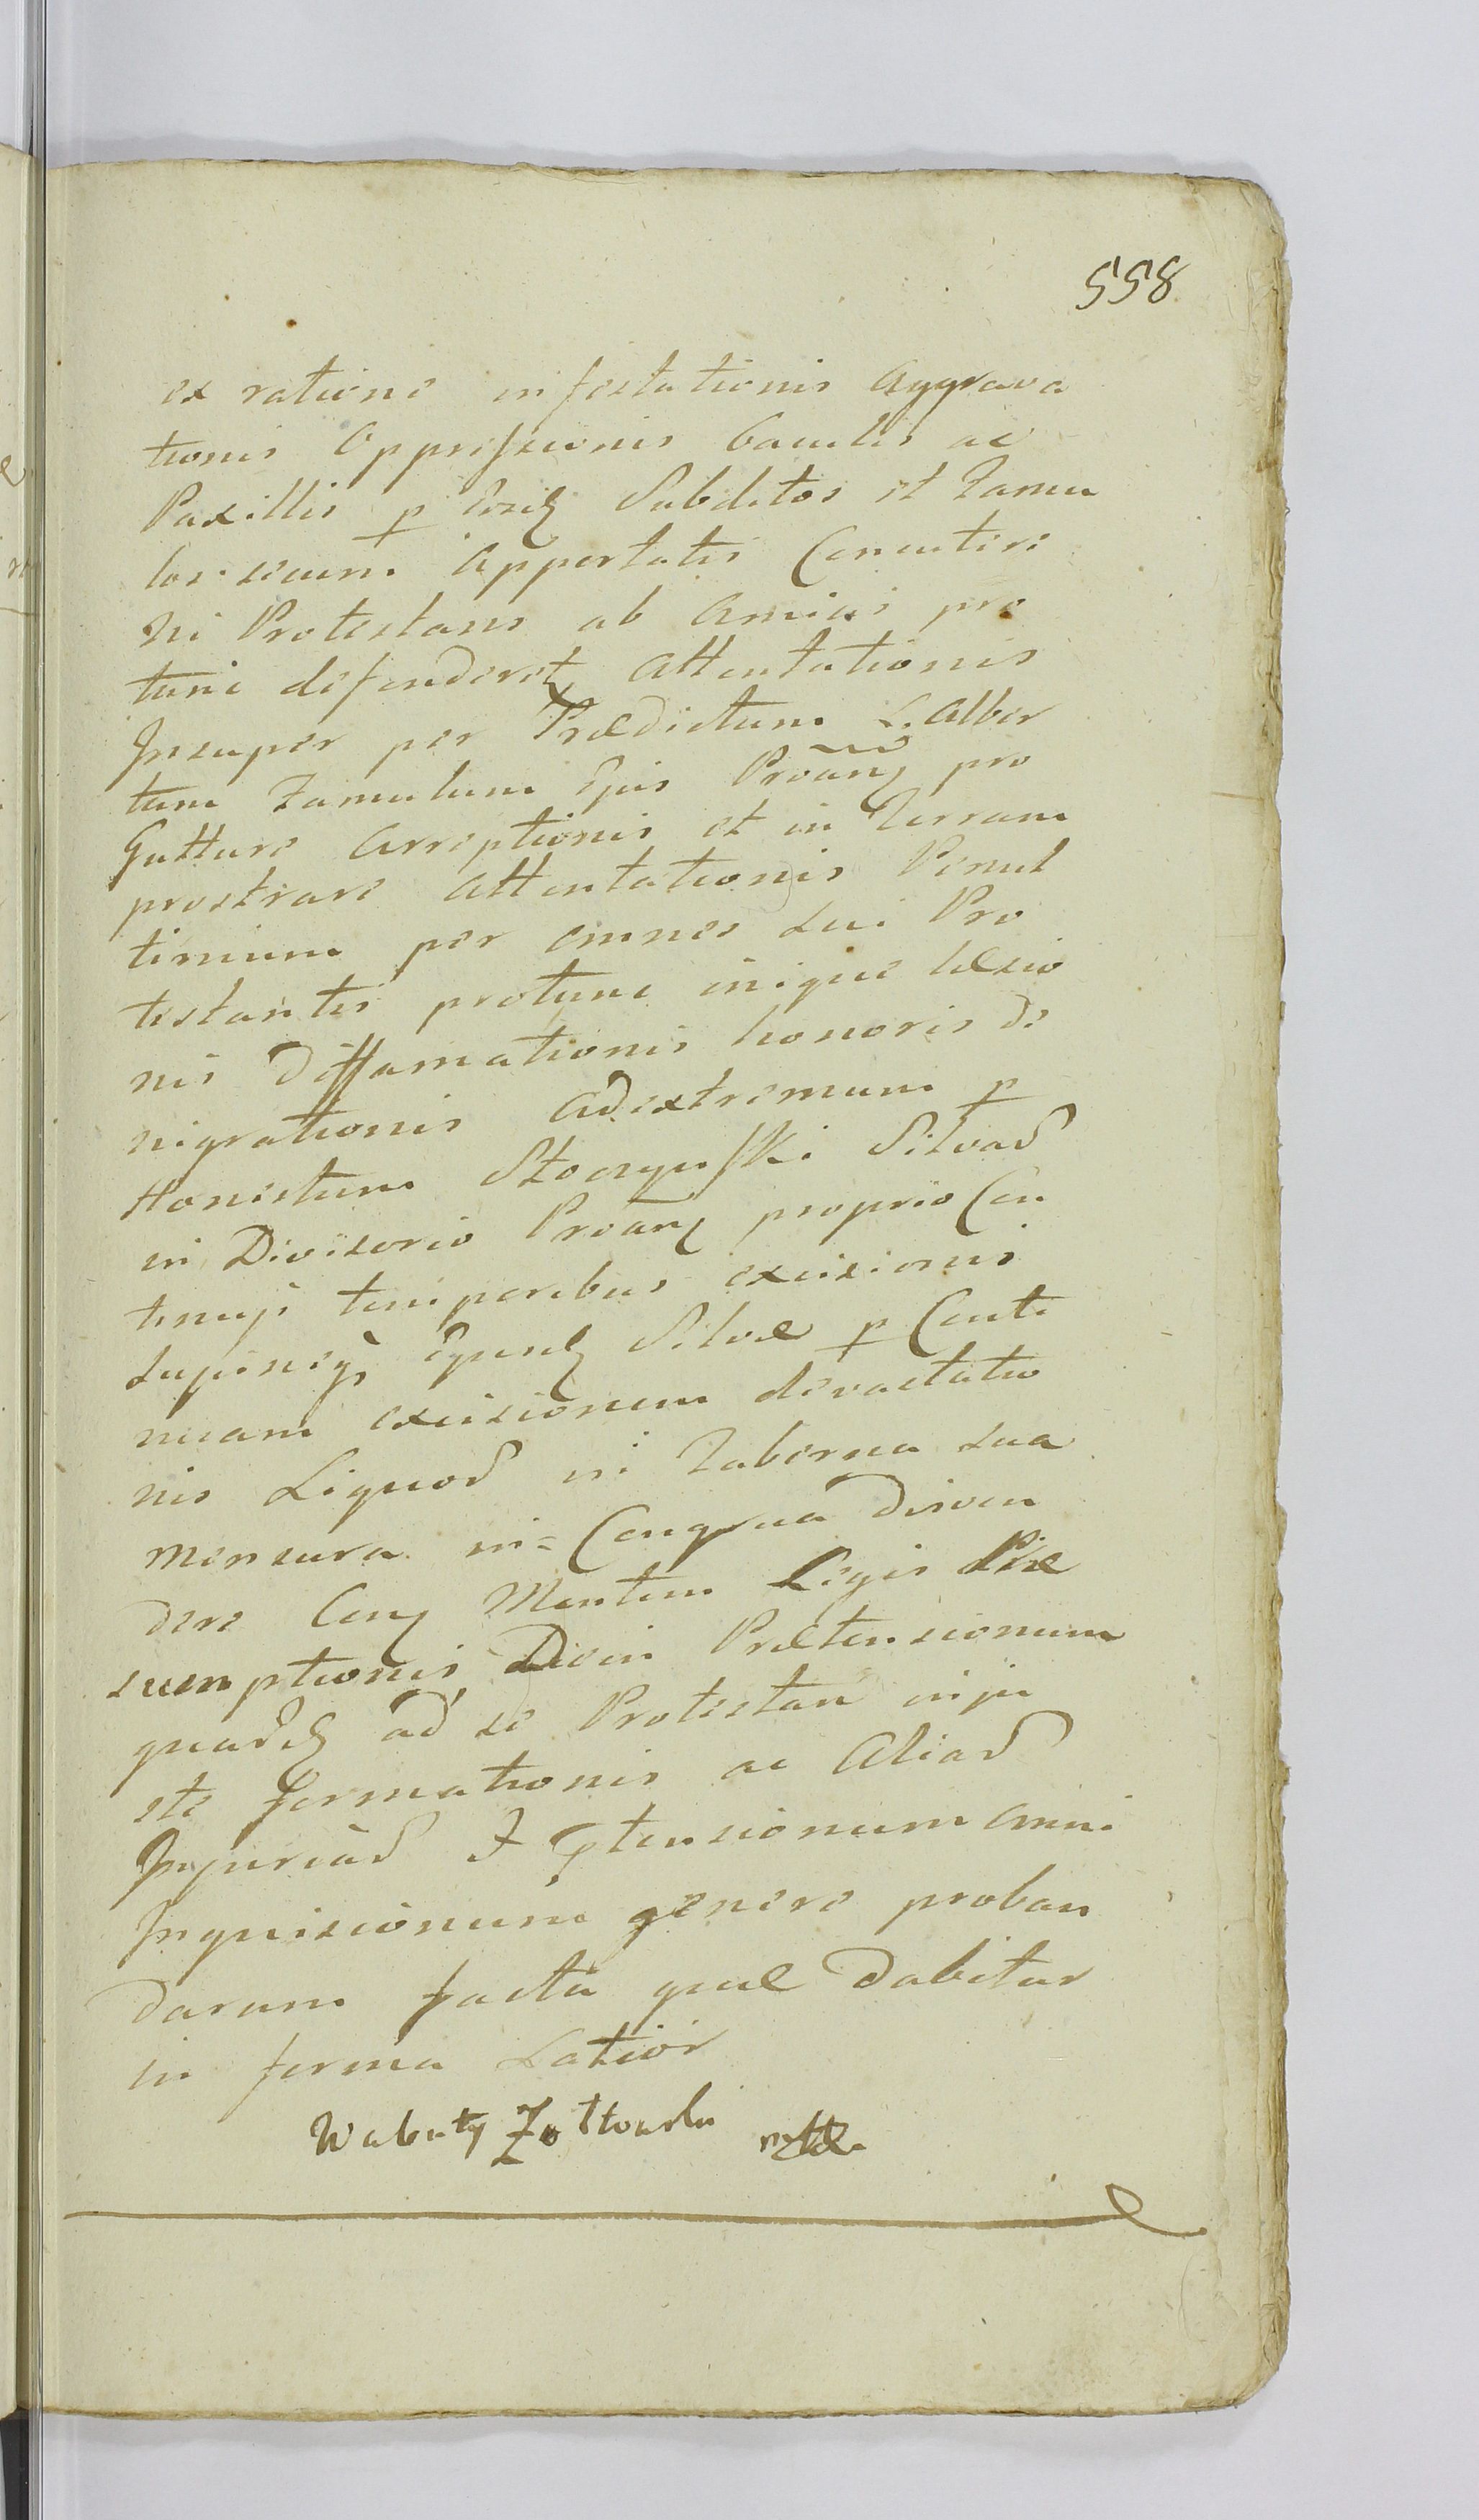 558
ex ratione infestationis Aggrava
tionis Oppressionis Baculis ac
Paxillis p Subditos et Famu
los secum Apportatis Concutere
ni Protestans ab Amicis pro
tunc defenderet Attentationis
Insuper per Prædictum L. Alber
tum Famulum Ejus pro
Gutture Arreptionis et in Terram
prostrare Attentationis Penul
timum per omnes sui Pro
testantis protunc inique læsio
nis Diffamationis honoris de
nigrationis Adextremum p
Honestum Silvar
in Divisorio proprio Con
tinuis temporibus excisionis
Ejusd Silvæ p Conti
nuam excisionem devastatio
nis Liquor in Taberna sua
mensura in= Congrua diven
dere Mentem Legis Præ
sumptionis Dein Prætensionum
ad se Protestan inju
ste formationis ac Aliar
Injuriar Et ptensionum omni
Inquisicionum genere proban
darum facta quæ Dabitur
in forma Latior
Walenty Żołtowski mp